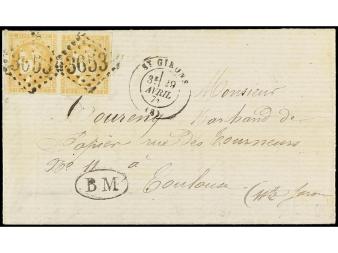 3653 3653
ST GIRONS
3E
19
AVRIL
71
(8)
Monsieur
Marchand de
Papier rue des Tourneurs
No 11 à
Toulouse (Hte Garon
BM